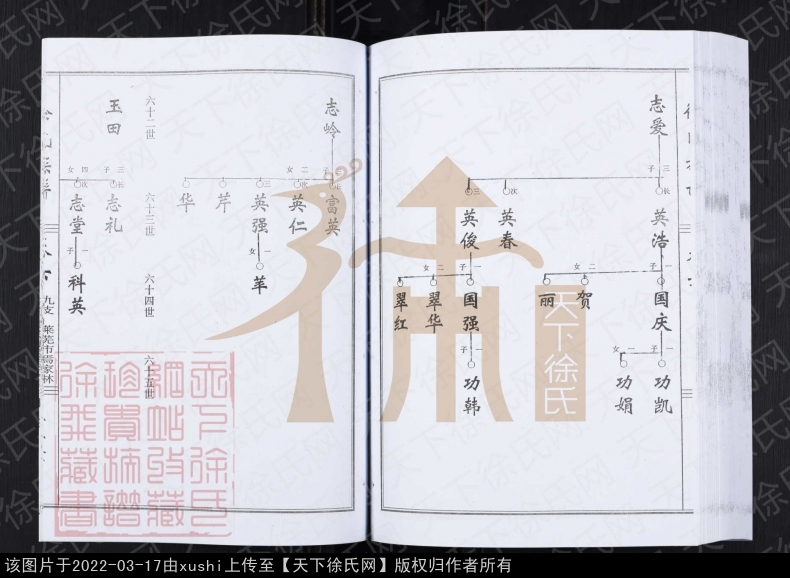 志爱
三子
长
英浩
一子
国庆
一子
功凯
一女
功娟
二女
贺
丽
次
英春
三
英俊
一子
国强
一子
功韩
二女
翠华
翠红
天下徐氏
志岭
三子
长
富英
次
英仁
三
英强
一女
羊
二女
芹
华
六十二世
六十三世
六十四世
六十五世
玉田
三子
长
志礼
次
志堂
一子
科英
四女
九支
莱芜市
家林
天下徐氏网
该图片于2022-03-17由xushi上传至【天下徐氏网】版权归作者所有